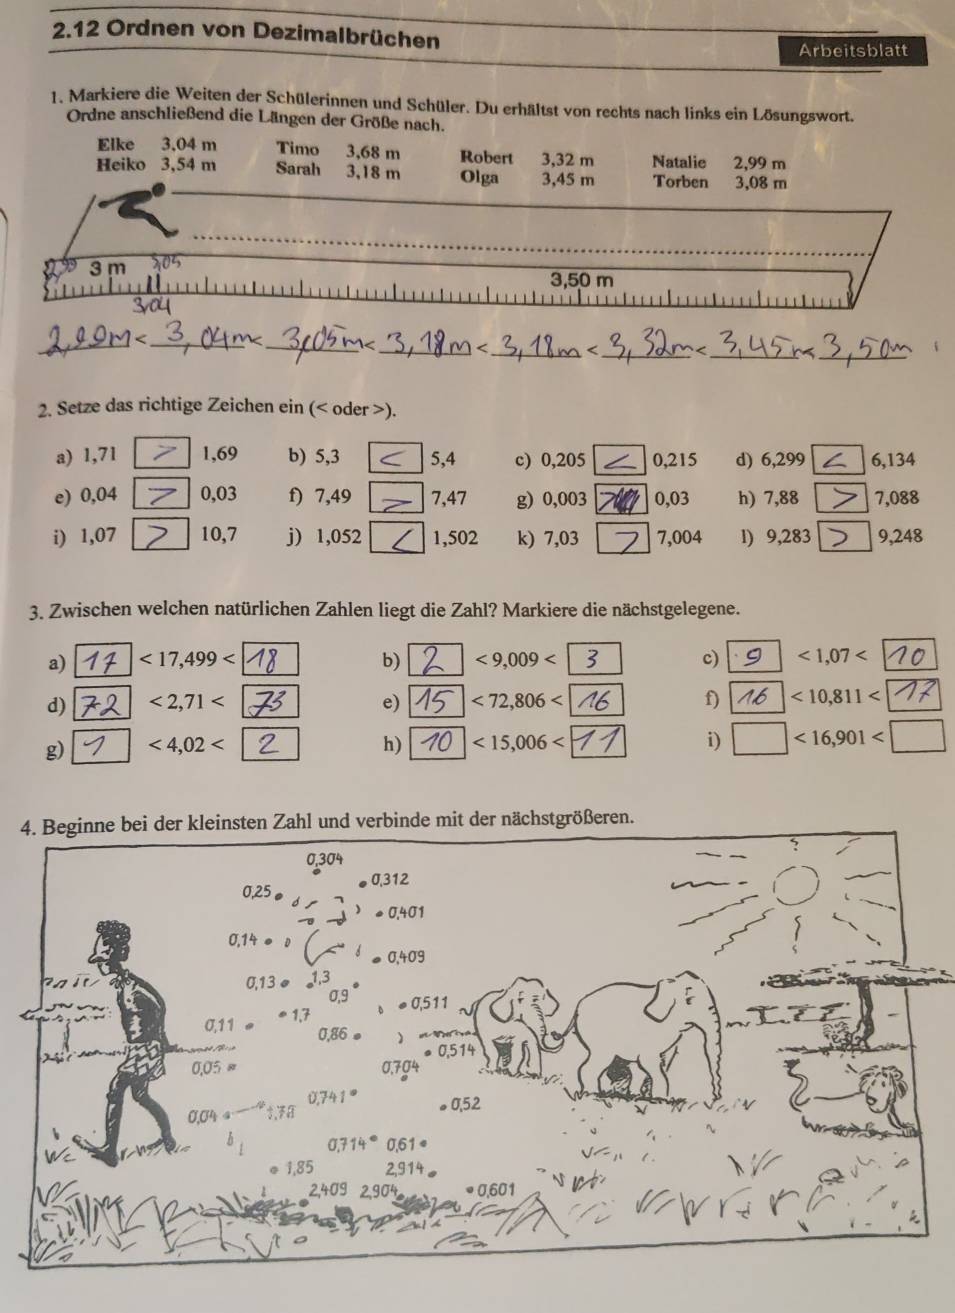 2.12 Ordnen von Dezimalbrüchen
Arbeitsblatt
1. Markiere die Weiten der Schülerinnen und Schüler. Du erhältst von rechts nach links ein Lösungswort.
Ordne anschließend die Längen der Größe nach.
Elke 3,04 m Timo 3,68 m Robert 3,32 m Natalie 2,99 m
Heiko 3,54 m Sarah 3,18 m Olga 3,45 m Torben 3,08 m
2,99 3 m 3,05 3,50 m
3,04
2,99m < 3,04m < 3,05m < 3,18m < 3,18m < 3,32m < 3,45m < 3,50m
2. Setze das richtige Zeichen ein (< oder >).
a) 1,71 > 1,69 b) 5,3 < 5,4 c) 0,205 < 0,215 d) 6,299 < 6,134
e) 0,04 > 0,03 f) 7,49 > 7,47 g) 0,003 0,03 h) 7,88 > 7,088
i) 1,07 > 10,7 j) 1,052 < 1,502 k) 7,03 > 7,004 l) 9,283 > 9,248
3. Zwischen welchen natürlichen Zahlen liegt die Zahl? Markiere die nächstgelegene.
a) 17 < 17,499 < 18 b) 2 < 9,009 < 3 c) 9 < 1,07 < 10
d) 72 < 2,71 < 73 e) 15 < 72,806 < 16 f) 16 < 10,811 < 17
g) 1 < 4,02 < 2 h) 10 < 15,006 < 11 i) < 16,901 <
4. Beginne bei der kleinsten Zahl und verbinde mit der nächstgrößeren.
0,304
0,25 0,312
0,401
0,14
0,409
0,13 1,3
0,9 0,511
0,11 1,7
0,86
0,514
0,05 0,704
0,741 0,52
0,04
0,714 0,61
1,85 2,914
2,409 2,904 0,601